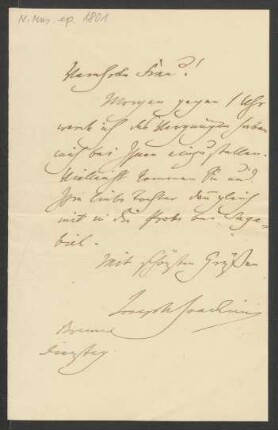 N. Mus. ep. 1801
Verehrte Frau!
Morgen gegen 1 Uhr
werde ich das Vergnügen haben
mich bei Ihnen einzustellen.
Vielleicht kommen Sie und
Ihre liebe Tochter dann gleich
mit in die Probe bei
biel.
Mit schönsten Grüßen
Joseph Joachim
Bremen
Dienstag